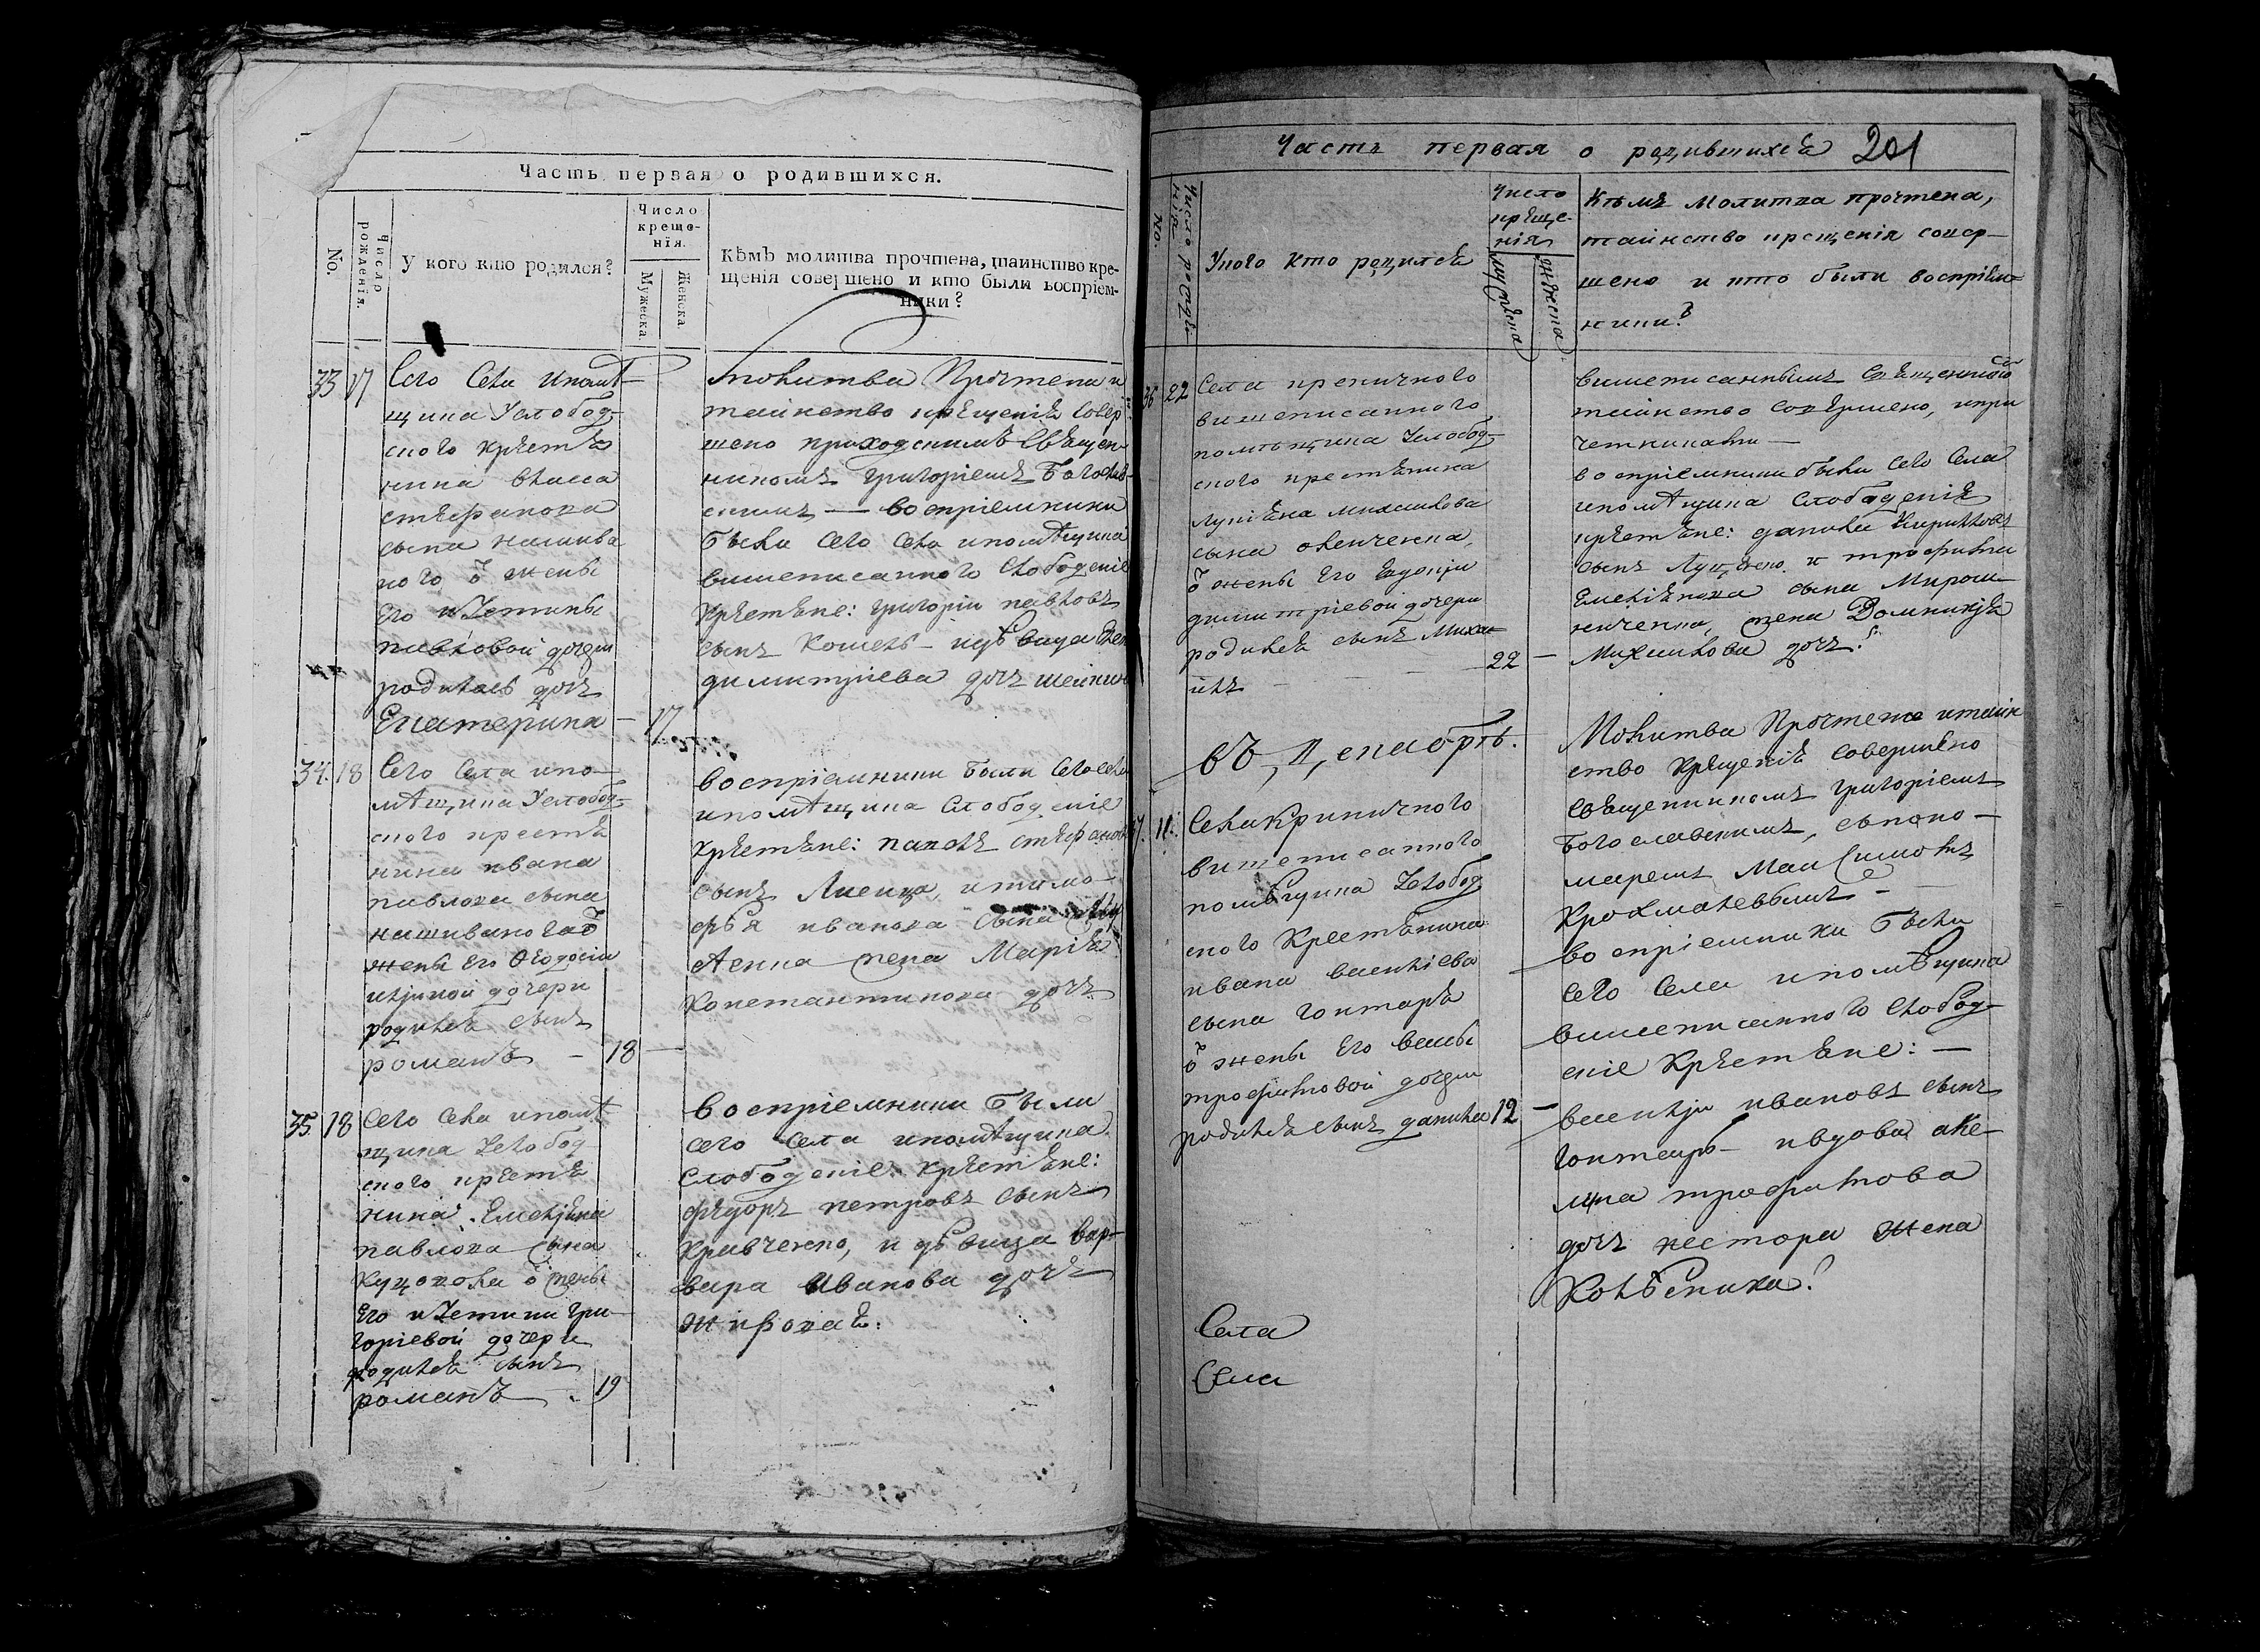 Часть первая о родившихся.
No.
Число рожденія.
У кого кто родился?
Число крещенія.
Мужеска
Женска.
Кѣмъ молитва прочтена, таинство кре-
щенія совершено и кто были воспріем-
ники?
33 17
Сего Села ипомѣ-
щика Услобод-
ского крестя
нина власа
стефанова
сына нашива
ного ѿ жены
его иустины
павловой дочери
родилась дочь
Екатерина — 17
Молитва Прочтена и
таинство крещенія совер
шено приходскимъ Священ-
никомъ григоріемъ Богослав-
скимъ — воспріемники
были сего села ипомѣщика
вишеписанного Слободскіе
Крестяне: григорій павловъ
сынъ Кошель — идѣвица
димитріева дочь
34. 18
Сего Села ипо-
мѣщика Услобод-
ского крестя
нина ивана
павлова сына
нашиваного ѿ
жены его Ѳеодосіи
дочери
родился сынъ
романъ — 18 —
воспріемники были Сего села
ипомѣщика Слободскіе
крестяне: павелъ стефановъ
сынъ Лисица, итимо-
фѣя иванова сына
жена Марія
Константинова дочь
35. 18
Сего села ипомѣ
щика Услобод
ского крестя
нина Емеліяна
павлова сына
ѿ жены
его иустини гри-
горіевой дочери
родился сынъ
романъ — 19
воспріемники были
сего села ипомѣщика
Слободскіе крестяне:
федоръ петровъ сынъ
Кравченко, и дѣвица вар-
вара Иванова дочь
Часть первая о родившихся 201
No.
Число рожде-
нія
У кого кто родился
Число
креще-
нія
мужеска
женска
Кѣмъ Молитва прочтена,
таинство крещенія совер-
шено и кто были воспріем-
ники?
36 22
Села креничного
вишеписанного
помѣщика Услобод-
ского крестянина
Лукіяна михаилова
сына
ѿ жены Его Евдокіи
димитріевой дочери
родился сынъ Миха-
илъ — — — 22 —
вишеписаннымъ Священникомъ
таинство совершено, ипри
четниками —
воспріемники были сего Села
ипомѣщика Слободскіе
крестяне: данило Кирилловъ
сынъ и трофима
Емеліянова сына Мирош-
ниченка, жена Домникія
Михаилова дочь.
въ Декабрѣ.
37. 11.
Села Криничного
вишеписанного
помѣщика Услобод
ского Крестянина
ивана василіева
сына гонтаря
ѿ жены Его
трофимовой дочери
родился сынъ данила 12 —
Молитва Прочтена итаин
ство крещенія совершено
Священникомъ григоріемъ
Богославскимъ, спано-
марем Максимомъ
воспріемники были
сего Села ипомѣщика
вишеписанного слобод-
скіе Крестяне: —
василій ивановъ сынъ
гонтарь — ивдова аке-
трофимова
дочь нестора жена
Колѣсника.
Села
Села